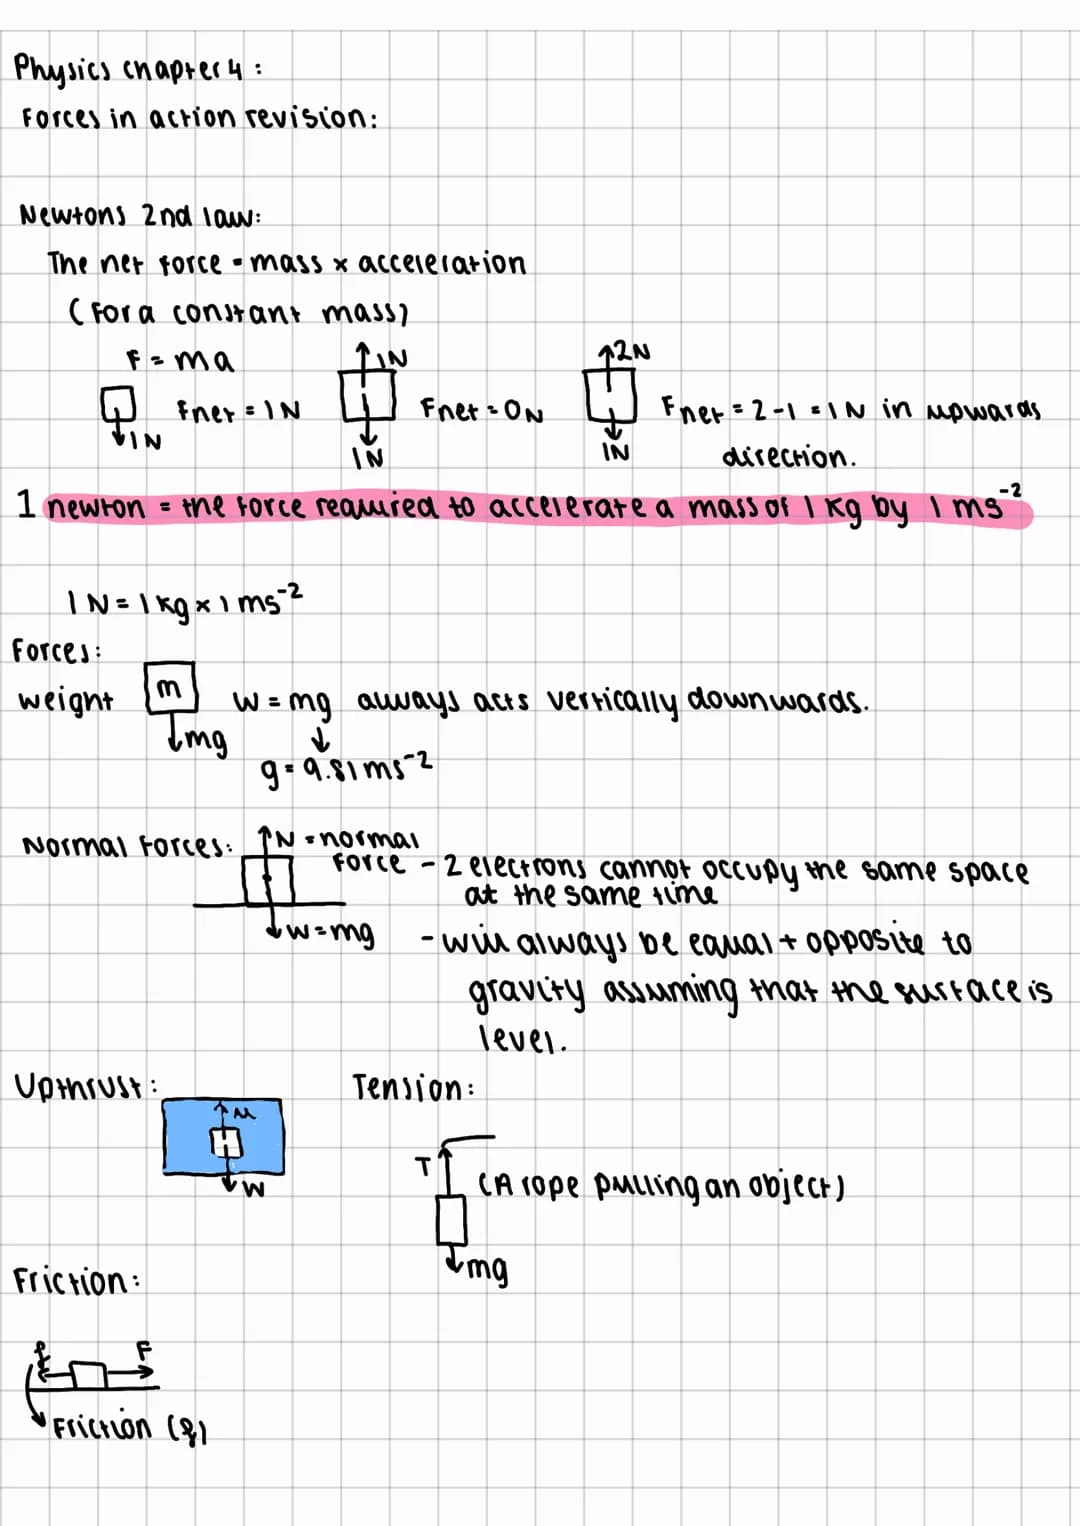 Physics chapter 4 :
Forces in action revision:
Newtons 2nd law:
The net force = mass x acceleration
(For a constant mass)
F = ma
1N
Fnet = 1N
1N
1N
Fnet = 0N
2N
1N
Fnet = 2-1 = 1N in upwards
direction.
1 newton = the force required to accelerate a mass of 1 kg by 1 ms⁻²
1 N = 1 kg x 1 ms⁻²
Forces:
weight
m
mg
W = mg always acts vertically downwards.
g = 9.81 ms⁻²
Normal Forces:
N = normal
force
W = mg
- 2 electrons cannot occupy the same space
at the same time
- will always be equal + opposite to
gravity assuming that the surface is
level.
Upthrust:
u
W
Tension:
T
mg
(A rope pulling an object)
Friction:
f
F
Friction (f)